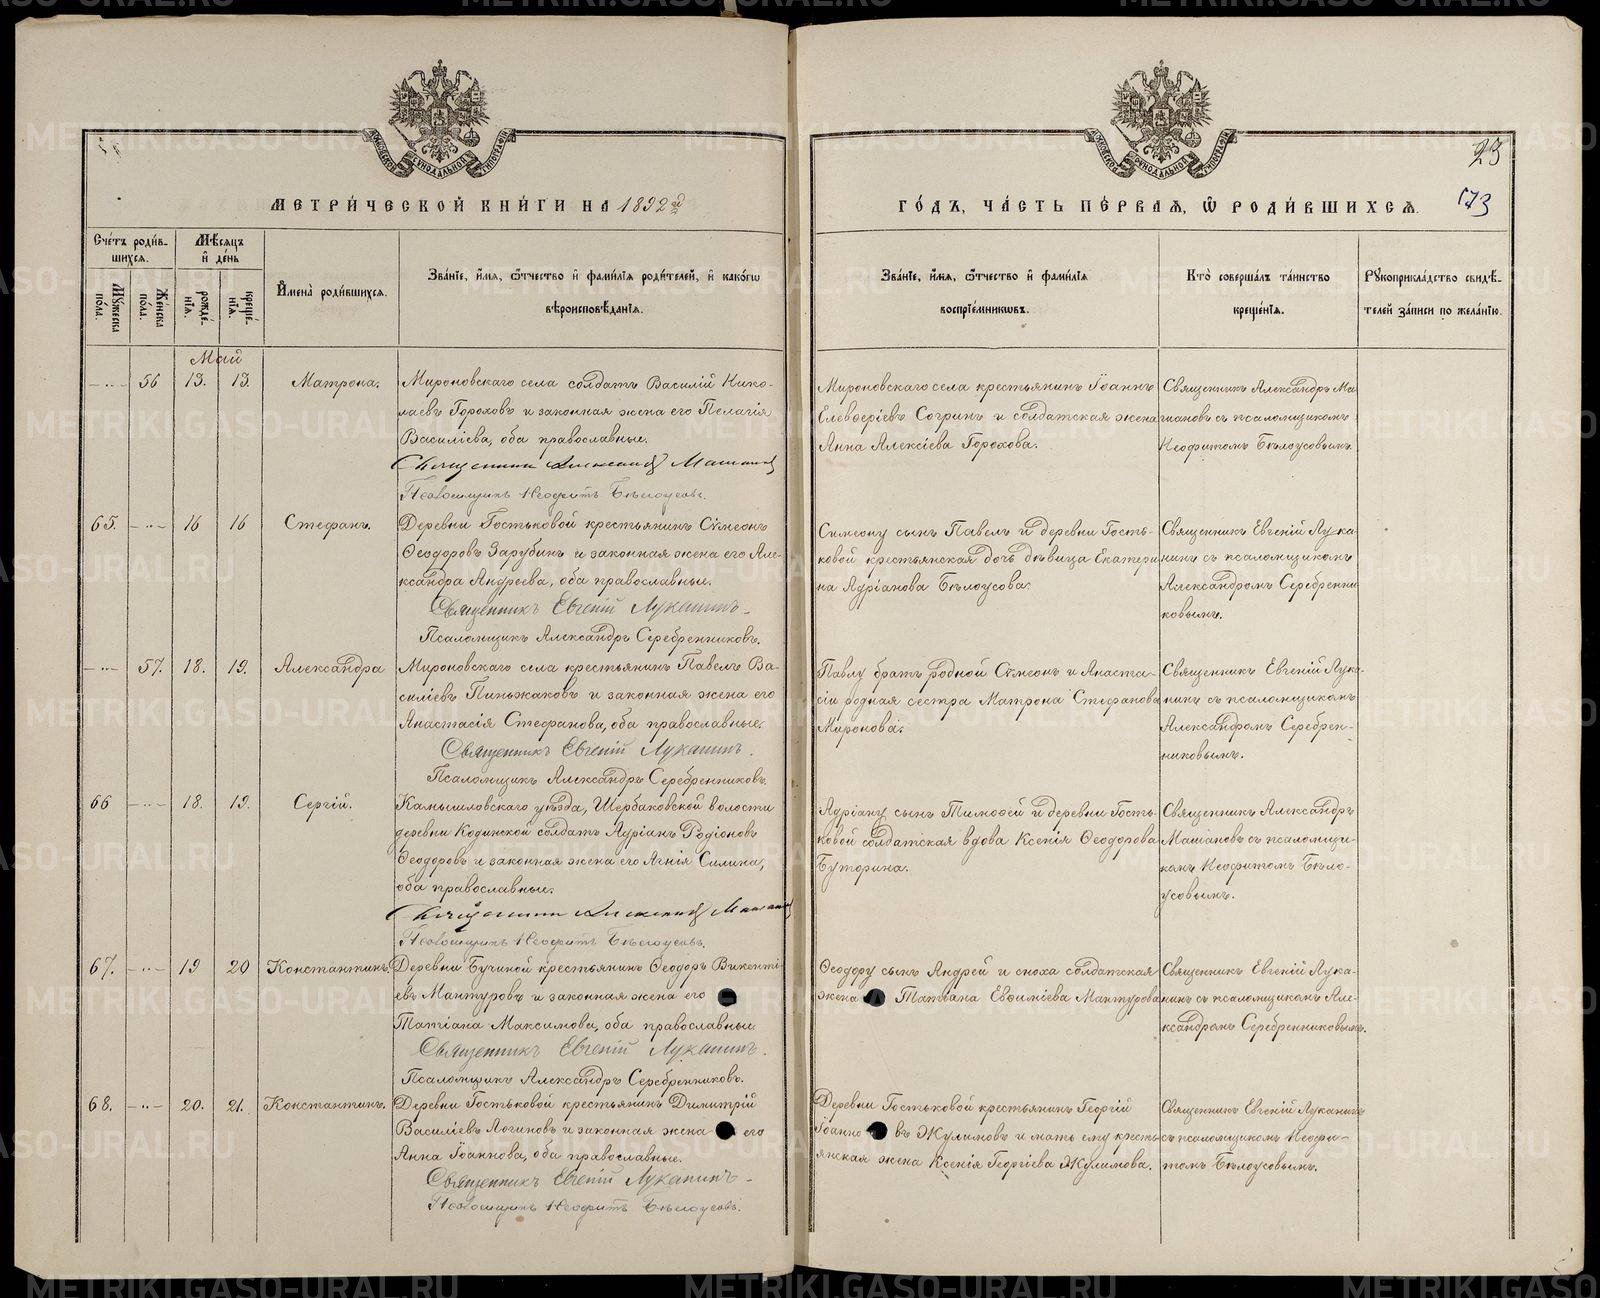 METRIKI.GASO-URAL.RU
23
МЕТРИ́ЧЕСКОЙ КНИ́ГИ НА 1892 й
ГО́ДЪ, ЧА́СТЬ ПЕ́РВАЯ, Ѽ РОДИ́ВШИХСЯ.
173
Сче́тъ роди́в-
шихся.
Мѣ́сяцъ
и҆ де́нь
Мꙋ́жеска по́ла.
Же́нска по́ла.
рожде́нїя.
креще́нїя.
И҆мена̀ роди́вшихся.
Зва́нїе, и҆́мя, ѻ҆́тчество и҆ фами́лїя роди́телей, и҆ како́гѡ
вѣроисповѣ́данїя.
Зва́нїе, и҆́мя, ѻ҆́тчество и҆ фами́лїя
воспрїе́мникѡвъ.
Кто̀ соверша́лъ та́инство
креще́нїя.
Рꙋкоприкла́дство свидѣ́-
телей за́писи по жела́нїю.
Май
56 13. 13. Матрона.
Мироновскаго села солдатъ Василій Нико-
лаевъ Гороховъ и законная жена его Пелагія
Василіева, оба православные.
Священникъ Александръ Машановъ
Псаломщикъ Неофитъ Бѣлоусовъ.
Мироновскаго села крестьянинъ Іоаннъ
Елевѳеріевъ Согринъ и солдатская жена
Анна Алексіева Горохова.
Священникъ Александръ Ма-
шановъ съ псаломщикомъ
Неофитомъ Бѣлоусовымъ.
65. 16 16 Стефанъ.
Деревни Гостьковой крестьянинъ Сѵмеонъ
Ѳеодоровъ Зарубинъ и законная жена его Але-
ксандра Андреева, оба православные.
Священникъ Евгеній Лукашинъ.
Псаломщикъ Александръ Серебренниковъ.
Симеону сынъ Павелъ и деревни Гость-
ковой крестьянская дочь дѣвица Екатери
на Адріанова Бѣлоусова.
Священникъ Евгеній Лука-
нинъ съ псаломщикомъ
Александромъ Серебренни
ковымъ.
57. 18. 19. Александра
Мироновскаго села крестьянинъ Павелъ Ва-
силіевъ Пиньжаковъ и законная жена его
Анастасія Стефанова, оба православные.
Священникъ Евгеній Луканинъ.
Псаломщикъ Александръ Серебренниковъ.
Павлу братъ родной Сѵмеонъ и Анаста-
сіи родная сестра Матрона Стефанова
Миронова.
Священникъ Евгеній Лука-
нинъ съ псаломщикомъ
Александромъ Серебрен-
никовымъ.
66 18. 19. Сергій.
Камышловскаго уѣзда, Щербаковской волости
деревни Кодинской солдатъ Адріанъ Родіоновъ
Ѳеодоровъ и законная жена его Агнія Силина,
оба православные.
Священникъ Александръ Машановъ
Псаломщикъ Неофитъ Бѣлоусовъ.
Адріану сынъ Тимоѳей и деревни Гость-
ковой солдатская вдова Ксенія Ѳеодорова
Буторина.
Священникъ Александръ
Машановъ съ псаломщи-
комъ Неофитомъ Бѣло-
усовымъ.
67. 19 20 Константинъ.
Деревни Бучиной крестьянинъ Ѳеодоръ Викенті-
евъ Мантуровъ и законная жена его
Татіана Максимова, оба православные
Священникъ Евгеній Луканинъ.
Псаломщикъ Александръ Серебренниковъ.
Ѳеодору сынъ Андрей и сноха солдатская
жена Татіана Евѳиміева Мантурова
Священникъ Евгеній Лука-
нинъ съ псаломщикомъ Але-
ксандромъ Серебренниковымъ.
68. 20. 21. Константинъ.
Деревни Гостьковой крестьянинъ Димитрій
Василіевъ Логиновъ и законная жена его
Анна Іоаннова, оба православные.
Священникъ Евгеній Луканинъ.
Псаломщикъ Неофитъ Бѣлоусовъ.
Деревни Гостьковой крестьянинъ Георгій
Іоанно въ Жулимовъ и мать ему кресть-
янская жена Ксенія Георгіева Жулимова.
Священникъ Евгеній Луканинъ
съ псаломщикомъ Неофи-
томъ Бѣлоусовымъ.